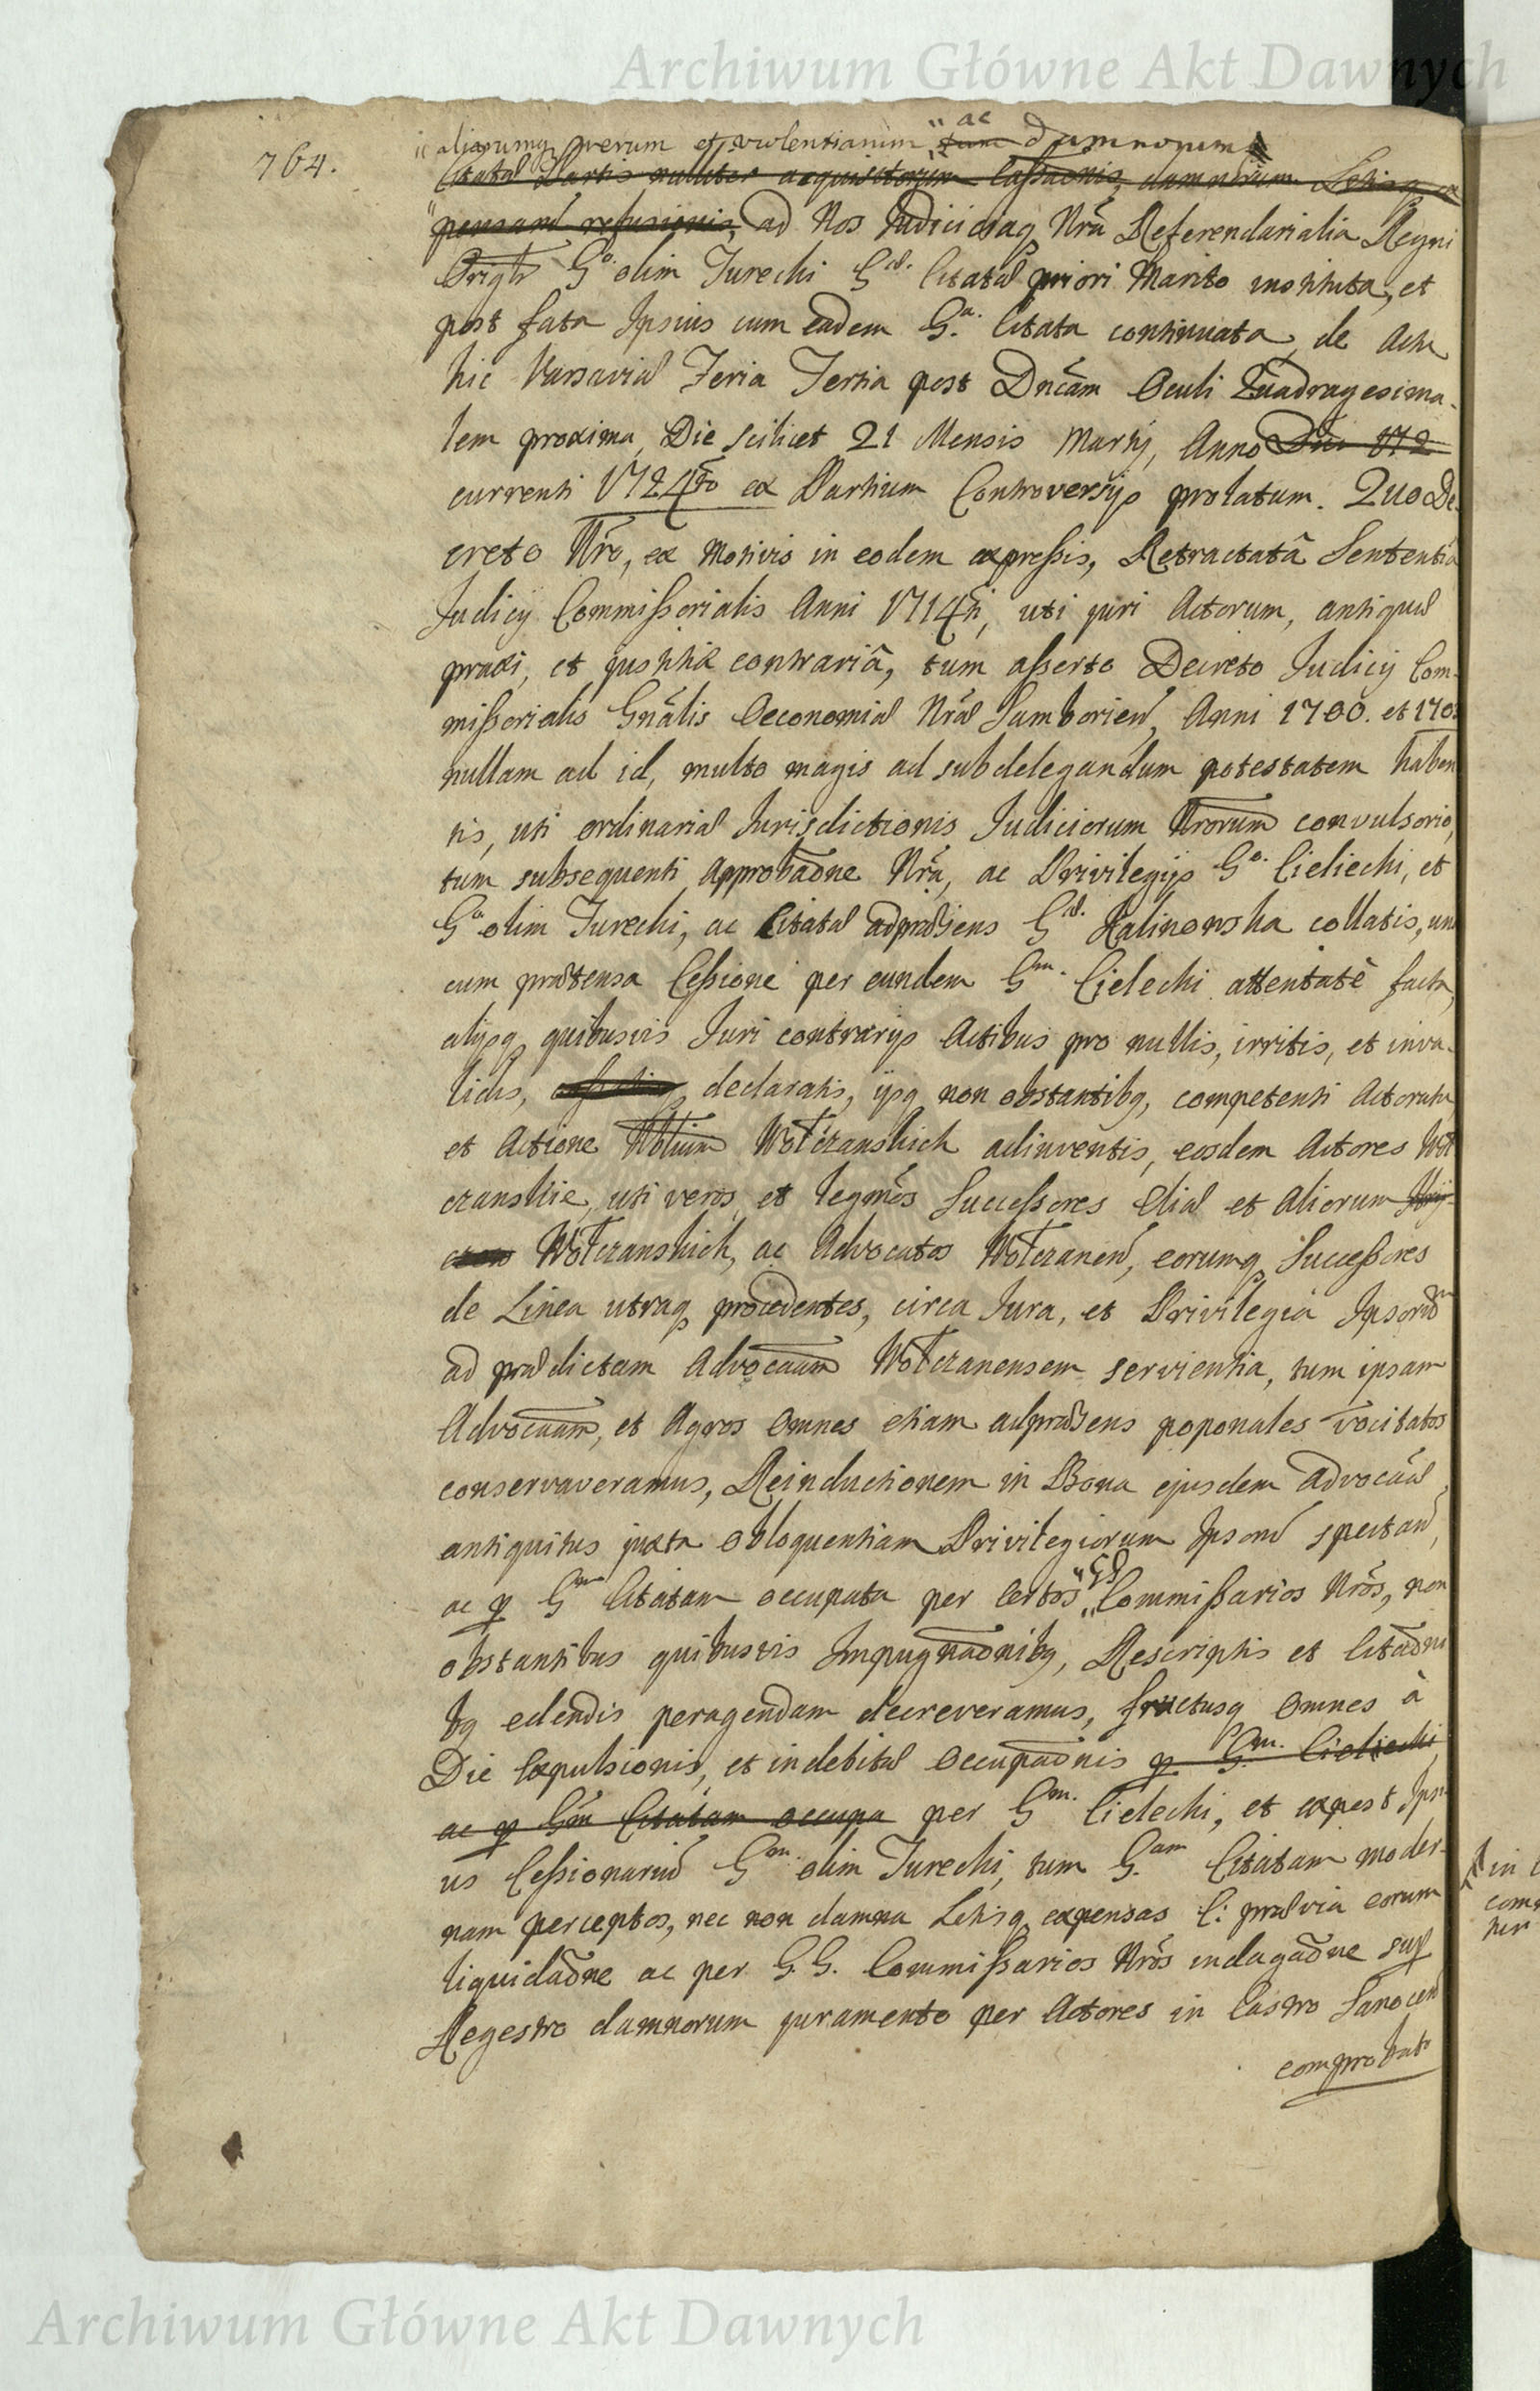 Archiwum Główne Akt Dawnych
764.
aliarumq rerum et violentiarum ac tum damnorum
Citatae Partis nulliter acquisitorum Cassaonis, damnorum Litisq ex
pensarum refusionis, ad Nos Judiciaq Nra Referendarialia Regni
Origtr Go olim Turecki Gae. Citatae priori Marito instituta, et
post fata Ipsius cum eadem Ga. Citata continuata, de Actu
hic Varsaviae Feria Tertia post Dncam Oculi Quadragesima-
lem proxima, Die scilicet 21 Mensis Martij, Anno Dni 172
currenti 1724to ex Partium Controversijs prolatum. Quo De-
creto Nro, ex Motivis in eodem expressis, Retractatâ Sententiâ
Judicij Commissorialis Anni 1714ti, uti juri Actorum, antiquae
praxi, et justitiae contrariâ, tum asserto Decreto Judicij Com-
missorialis Gnalis Oeconomiae Nrae Samborien, Anni 1700. et 170
nullam ad id, multo magis ad subdelegandum potestatem haben
tis, uti ordinariae Jurisdictionis Judiciorum Nrorum convulsorio,
tum subsequenti Approbaone Nra, ac Privilegijs Go. Cieliecki, et
Go olim Turecki, ac Citatae adpraesens Gae. Kalinowska collatis, una
cum praetensa Cessione per eundem Gm. Cielecki attentatè facta,
alijsq quibusvis Juri contrarijs Actibus pro nullis, irritis, et inva-
lidis, declaratis, ijsq non obstantibq, competenti Actoratu
et Actione Nbilium Wołczanskich adinventis, eosdem Actores Woł
czanskie, uti veros, et legmos Successores Eliae et Aliorum
Wołczanskich, ac Advocatos Wołczanen, eorumq Successores
de Linea utraq procedentes, circa Jura, et Privilegia Ipsorum
ad praedictam Advocaum Wołczanensem servientia, tum ipsam
Advocaum, et Agros Omnes etiam adpraesens poponales vocitatos
conservaveramus, Reinductionem in Bona ejusdem Advocaae
antiquitus juxta obloquentiam Privilegiorum Ipsorum spectan,
ac p Gm Citatam occupata per certos GG Commissarios Nros, non
obstantibus quibusvis Impugnaonibq, Rescriptis et Citaoni
bq edendis peragendam decreveramus, fructusq Omnes à
Die Expulsionis, et indebitae Occupaonis p Gm. Cieliecki,
ac p Gm Citatam occupa per Gm. Cielecki, et expost Ipsi
us Cessionarium Gm. olim Turecki, tum Gam Citatam moder-
nam perceptos, nec non damna Litisq expensas C: praevia eorum
liquidaone ac per G.G. Commissarios Nros indagaone sup
Regestro damnorum juramento per Actores in Castro Sanocen
comprobato
Archiwum Główne Akt Dawnych